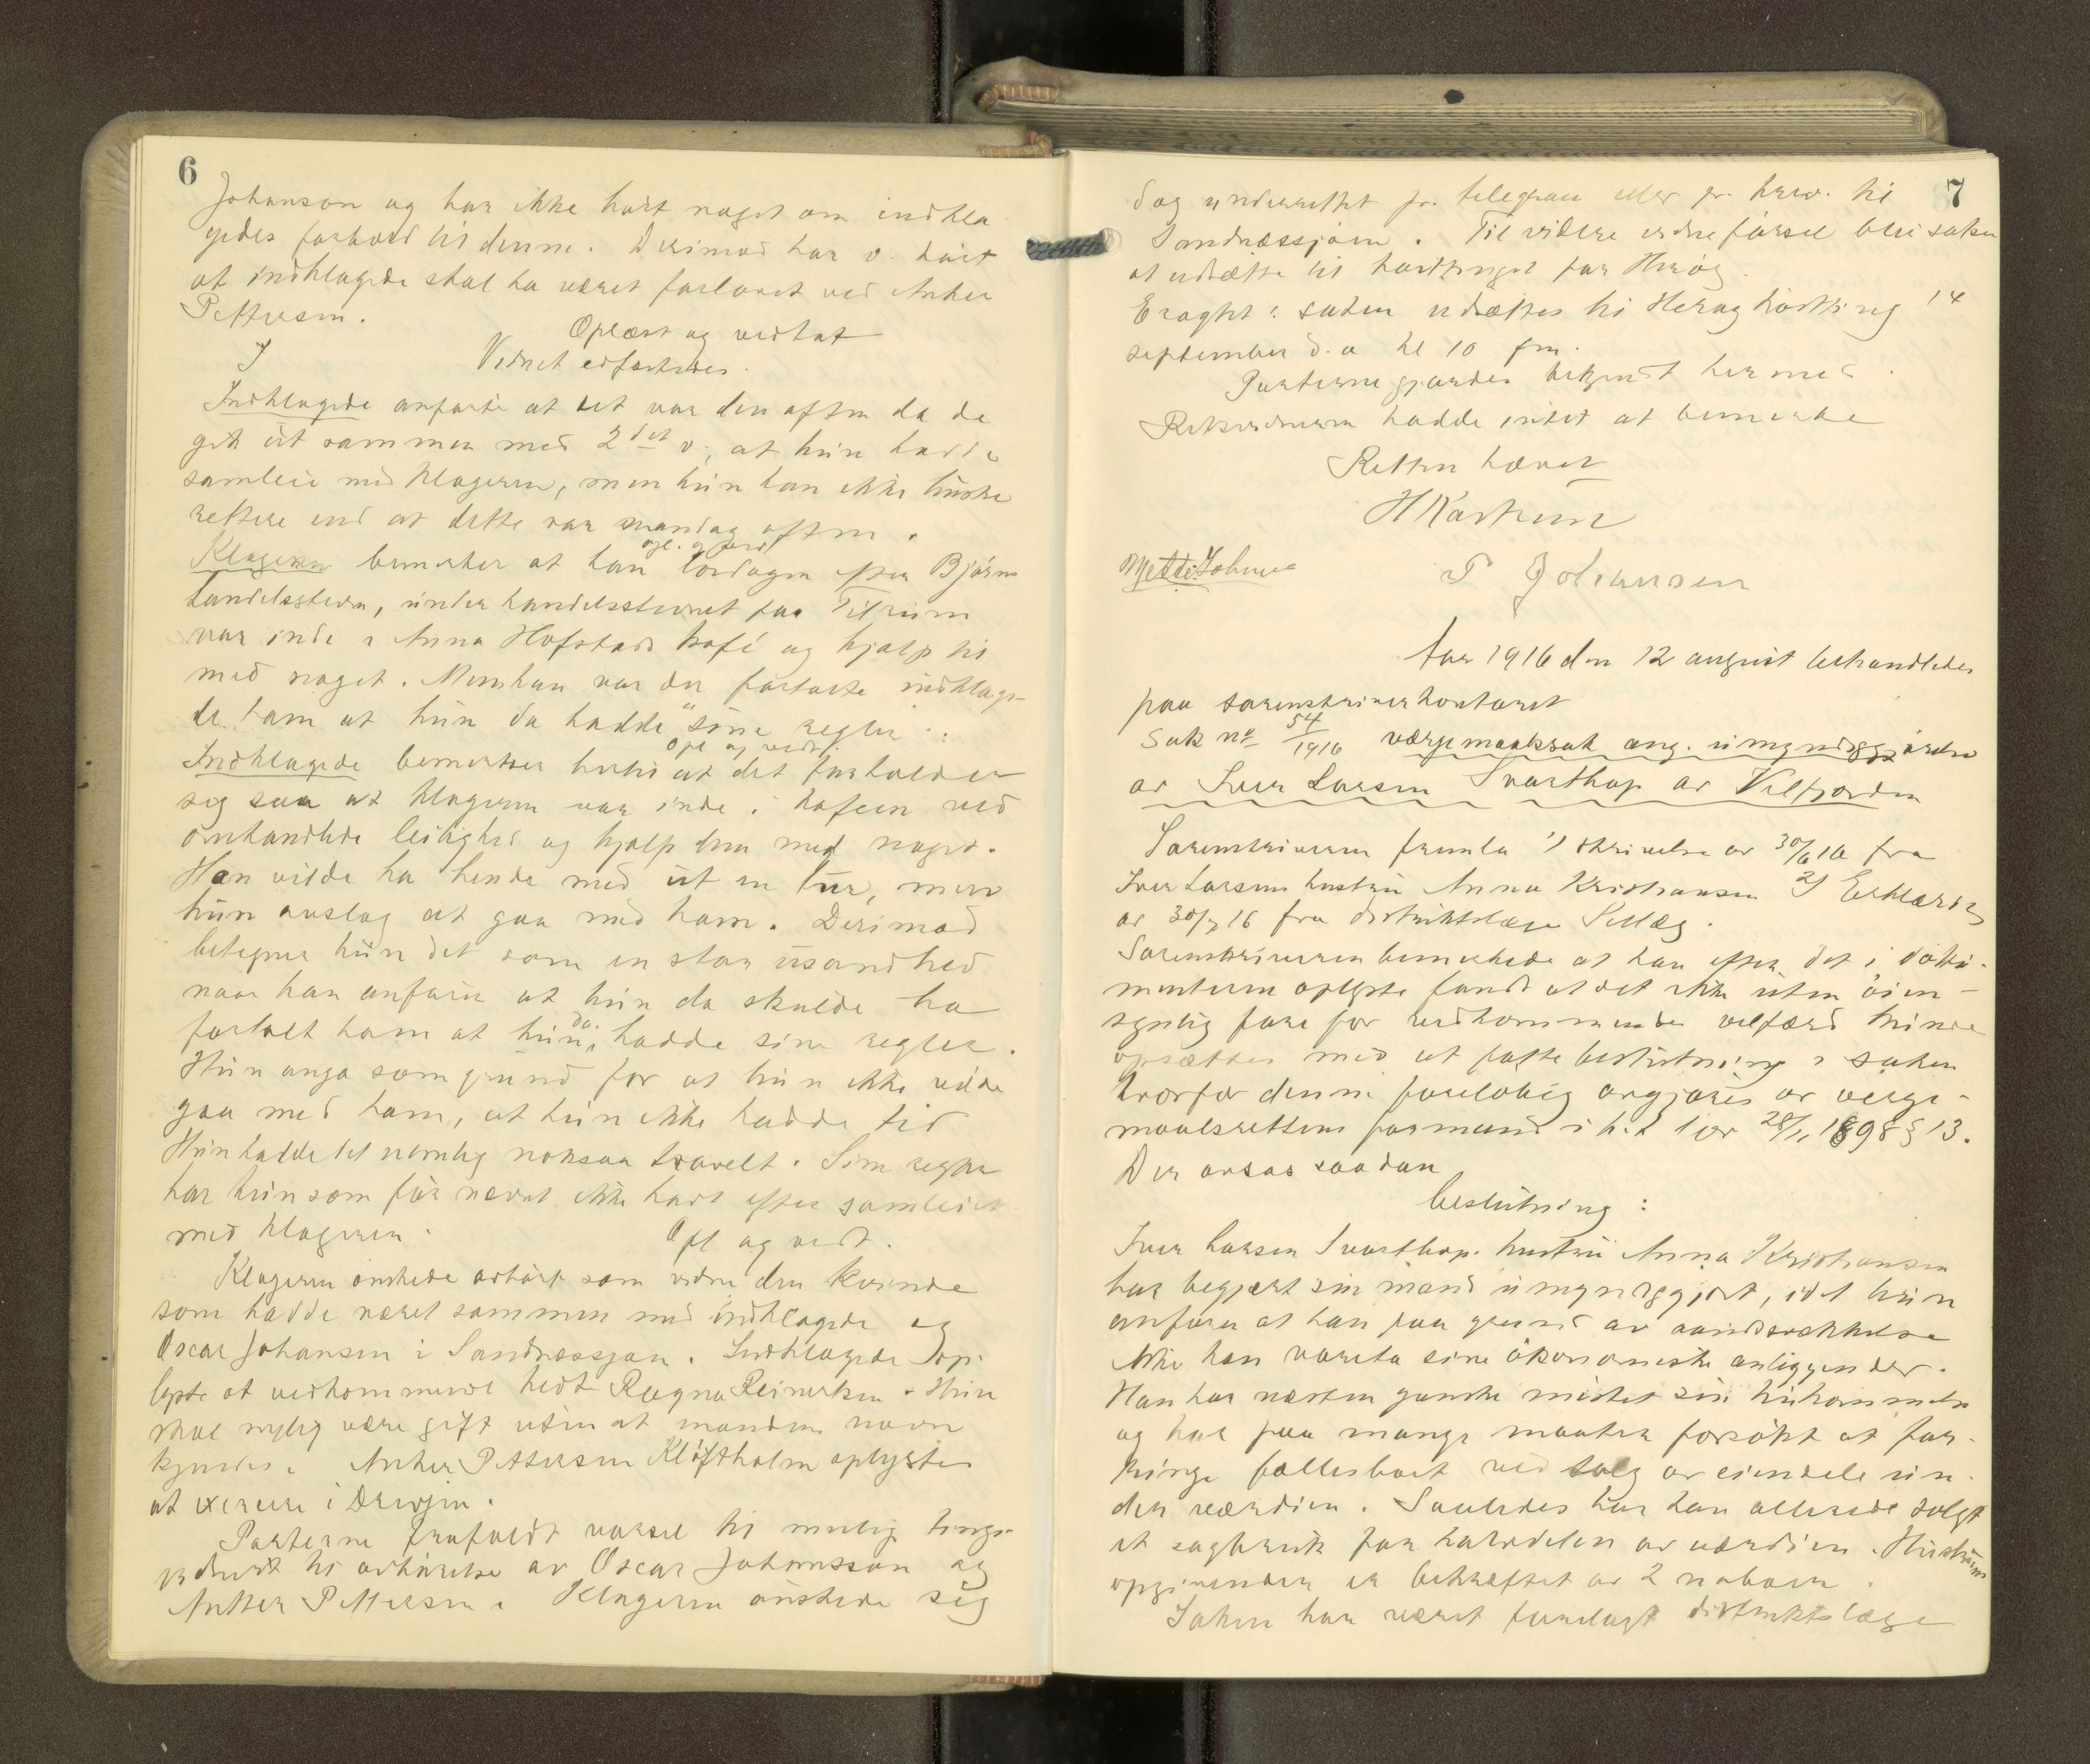 6
Johanson og har ikke hørt noget om indkla
gedes forhold til denne. Derimod har v. hørt
at indklagede skal ha været forlovet ved Anker
Pettersen.
Oplæst og vedtat
Vidnet edfæstedes.
Indklagede anførte at det var den aften da de
gik ut sammen med 2det v. at hun hadde
samleie med klageren, men hun kan ikke huske
rettere end at dette var mandag aften.
opl. og vedt
Klageren bemerker at han lørdagen efter Bjørns
handelsstevne, under handelsstevnet paa Tilrum
var inde i Anna Hofstads kafé og hjalp til
med noget. Mens han var der fortalte indklage-
de ham at hun da hadde "sine regler".
opl og vedt.
Indklagede bemerker hertil at det forholder
sig saa at klageren var inde i kafeen ved
omhandlede leilighed og hjalp dem med noget.
Han vilde ha hende med ut en tur, men
hun avslog at gaa med ham. Derimod
betegner hun det som en stor usandhed
naar han anfører at hun da skulde ha
fortalt ham at hun da hadde sine regler.
Hun anga som grund for at hun ikke vilde
gaa med ham, at hun ikke hadde tid
Hun hadde det nemlig noksaa travelt. Sine regler
har hun som før nævnt ikke hat efter samleiet
med klageren.
Opl og vedt.
Klageren ønskede avhørt som vidne den kvinde
som hadde været sammen med indklagede og
Oscar Johansen i Sandnessjøen. Indklagede op-
lyste at vedkommende hedte Ragna Reinertsen. Hun
skal nylig være gift uten at mandens navn
kjendes. Anker Pettersen Kløftholm oplystes
at exercere i Drevjen.
Parterne frafaldt varsel til mulig tings-
vidne til avhørelse av Oscar Johansson og
Anker Pettersen. Klageren ønskede sig
7
dog underrettet pr. telegram eller pr. brev til
Sandnessjøen. Til videre vidneførsel blir saken
at utsætte til høsttinget for Herøy.
Eragtet: saken utsættes til Herøy høstting 14
september d. a kl 10 fm.
Parterne gjordes bekjendt hermed.
Retsvidnerne hadde intet at bemerke
Retten hævet
P Johansen
Aar 1916 den 12 august behandledes
paa sorenskriverkontoret
Sak no 54/1916 værgemaalssak ang. umyndiggjørelse
av Iver Larsen Svarthop av Velfjorden
Sorenskriveren fremla 1) skrivelse av 30/6 16 fra
Iver Larsens hustru Anna Kristiansen 2) Erklæring
av 30/7 16 fra distriktslæge
Sorenskriveren bemerkede at han efter det i doku-
menterne oplyste fandt at det ikke uten øien-
synlig fare for vedkommendes velfærd kunde
opsættes med at fatte beslutning i saken
hvorfor denne foreløbig avgjøres av verge-
maalsrettens formand i h.t lov 28/11 1898 § 13.
Der avsas saadan
beslutning:
Iver Larsen Svarthop. hustru Anna Kristiansen
har begjært sin mand umyndiggjort, idet hun
anfører at han paa grund av aandssvækkelse
ikke kan vareta sine økonomiske anliggender.
Han har næsten ganske mistet sin hukommelse
og har paa mange maater forsøkt at for-
ringe fællesboet ved salg av eiendele un-
der værdien. Saaledes har han allerede solgt
et sagbruk for halvdelen av værdien. Hustruens
opgivender er bekræftet av 2 naboer.
Saken har været forelagt distriktslæge